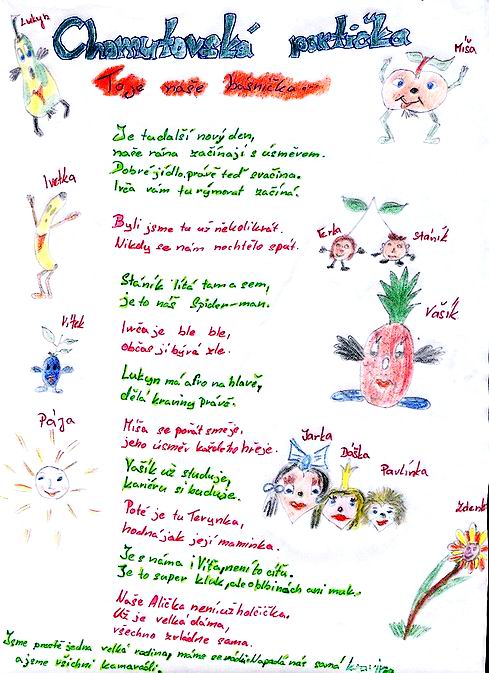 Lukyn
Chomutovská partička
Míša
To je naše básnička
Je tu další nový den,
naše rána začínají s úsměvem.
Dobré jídlo, právě teď svačina.
Ivča vám tu rýmovat začíná.
Ivetka
Byli jsme tu už několikrát.
Nikdy se nám nechtělo spát.
Terka
Stáník
Stáník lítá tam a sem,
je to náš Spider-man.
Vašík
Vítek
Ivča je ble ble,
občas jí bývá zle.
Lukyn má afro na hlavě,
dělá kraviny právě.
Pája
Míša se pořát směje,
jeho úsměv každého hřeje.
Jarka
Dáška
Pavlínka
Vašík už studuje,
kariéru si buduje.
Poté je tu Terunka,
hodná jak její maminka.
Zdeněk
Je s námi i Víťa, není to cíťa.
Je to super kluk, ale o blbinách ani muk.
Naše Alička není už holčička.
Už je velká dáma,
všechno zvládne sama.
Jsme prostě jedna velká rodina, máme se rádi. Napadá nás samá
a jsme všichni kamarádi.